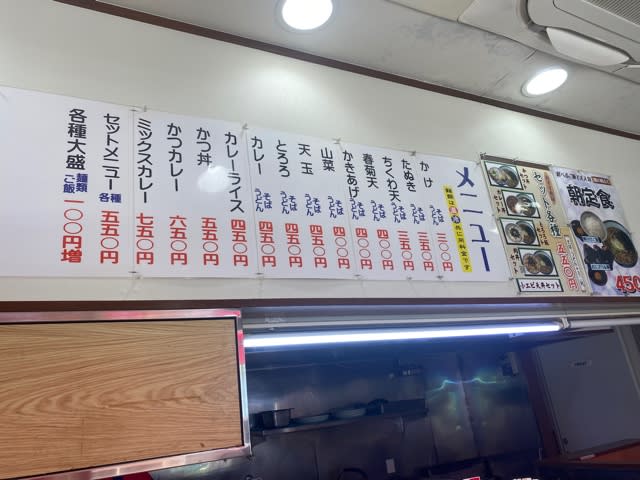 メニュー
麺類は温冷共に同料金です
かけ そばうどん 三〇〇円
たぬき そばうどん 三五〇円
ちくわ天 そばうどん 三五〇円
春菊天 そばうどん 四〇〇円
かきあげ そばうどん 四〇〇円
山菜 そばうどん 四〇〇円
天玉 そばうどん 四五〇円
とろろ そばうどん 四五〇円
カレー そばうどん 四五〇円
カレーライス 四五〇円
かつ丼 五五〇円
かつカレー 六五〇円
ミックスカレー 七五〇円
セットメニュー 各種 五五〇円
各種大盛 麺類ご飯 一〇〇円増
セット各種 五五〇円
エビ天丼セット
朝定食
450